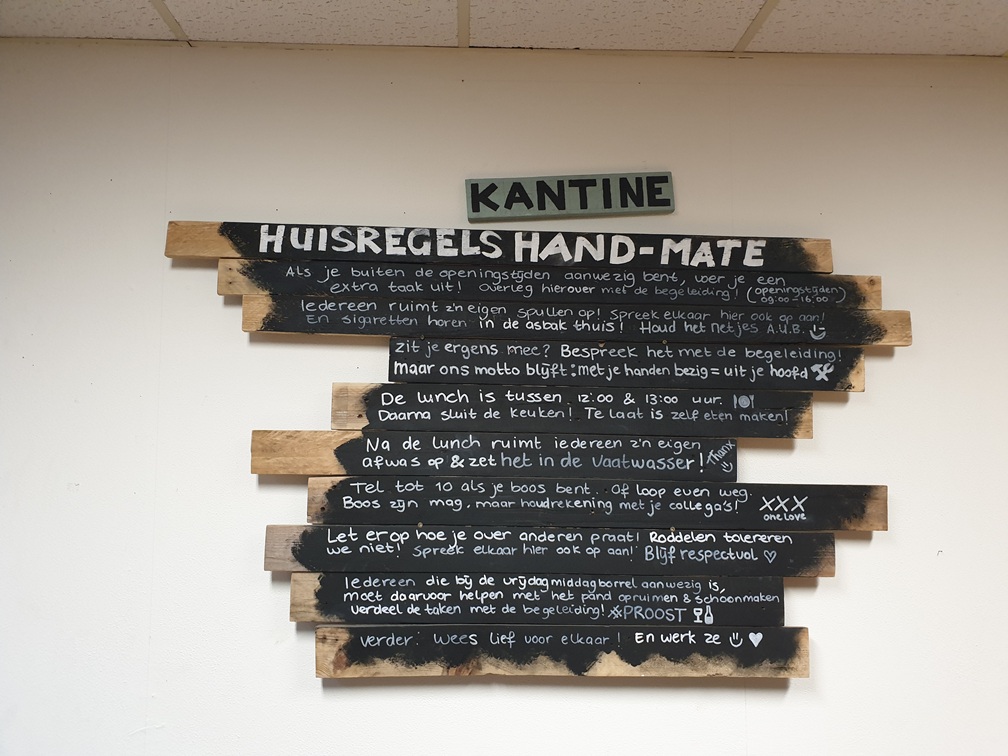 KANTINE
HUISREGELS HAND-MATE
Als je buiten de openingstijden aanwezig bent, voer je een
extra taak uit! Overleg hierover met de begeleiding! (openingstijden
09:00-16:00)
Iedereen ruimt z'n eigen spullen op! Spreek elkaar hier ook op aan!
En sigaretten horen in de asbak thuis! Houd het netjes A.U.B.
zit je ergens mee? Bespreek het met de begeleiding!
Maar ons motto blijft: met je handen bezig = uit je hoofd
De lunch is tussen 12:00 & 13:00 uur.
Daarna sluit de keuken! Te laat is zelf eten maken!
Na de lunch ruimt iedereen z'n eigen
afwas op & zet het in de vaatwasser! Thanx
Tel tot 10 als je boos bent.. Of loop even weg.
Boos zijn mag, maar houd rekening met je collega's! XXX
one love
Let er op hoe je over anderen praat! Roddelen tolereren
we niet! Spreek elkaar hier ook op aan! Blijf respectvol
Iedereen die bij de vrijdagmiddagborrel aanwezig is,
moet daarvoor helpen met het pand opruimen & schoonmaken
verdeel de taken met de begeleiding! #PROOST
Verder: Wees lief voor elkaar! En werk ze